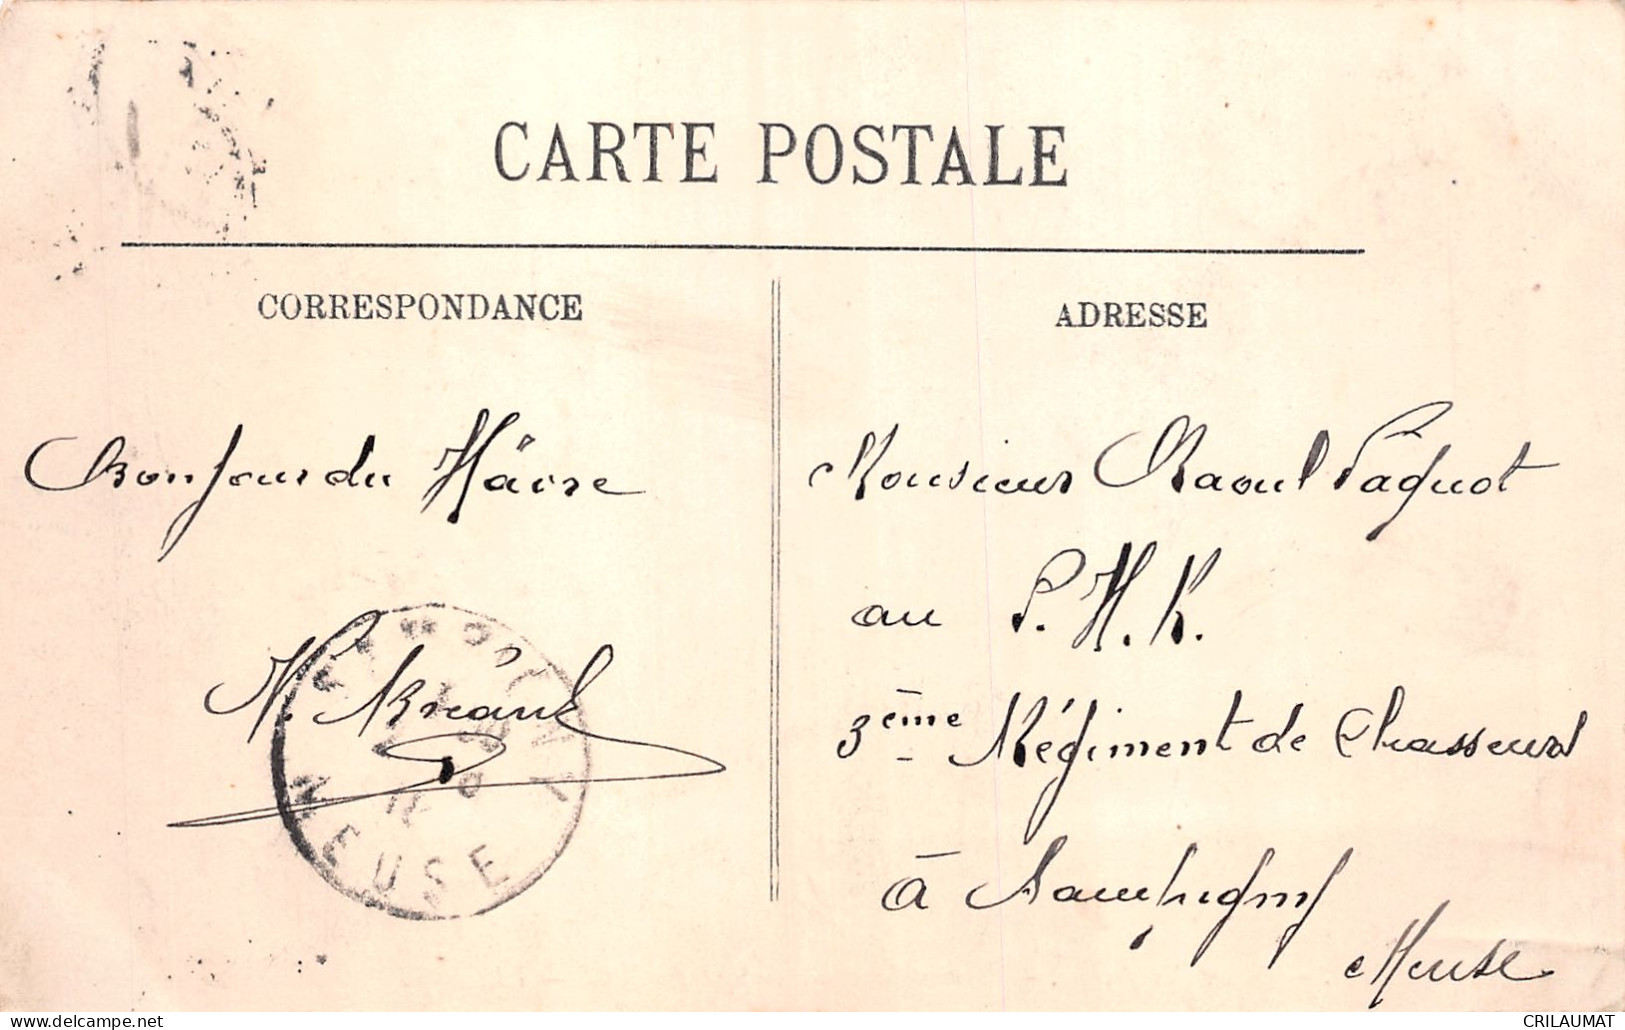 CARTE POSTALE
CORRESPONDANCE
ADRESSE
Bonjour du Hâvre
Monsieur Raoul Paquot
au P. H. R.
3ème Régiment de Chasseurs
à Sampigny
Meuse
MEUSE
www.delcampe.net
CRILAUMAT